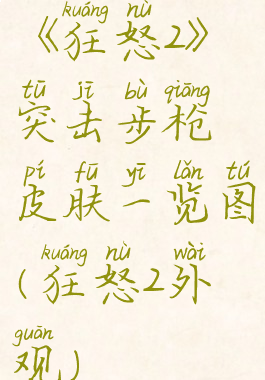 kuáng nù
《狂怒2》
tū jī bù qiāng
突击步枪
pí fū yī lǎn tú
皮肤一览图
kuáng nù wài
(狂怒2外
guān
观)